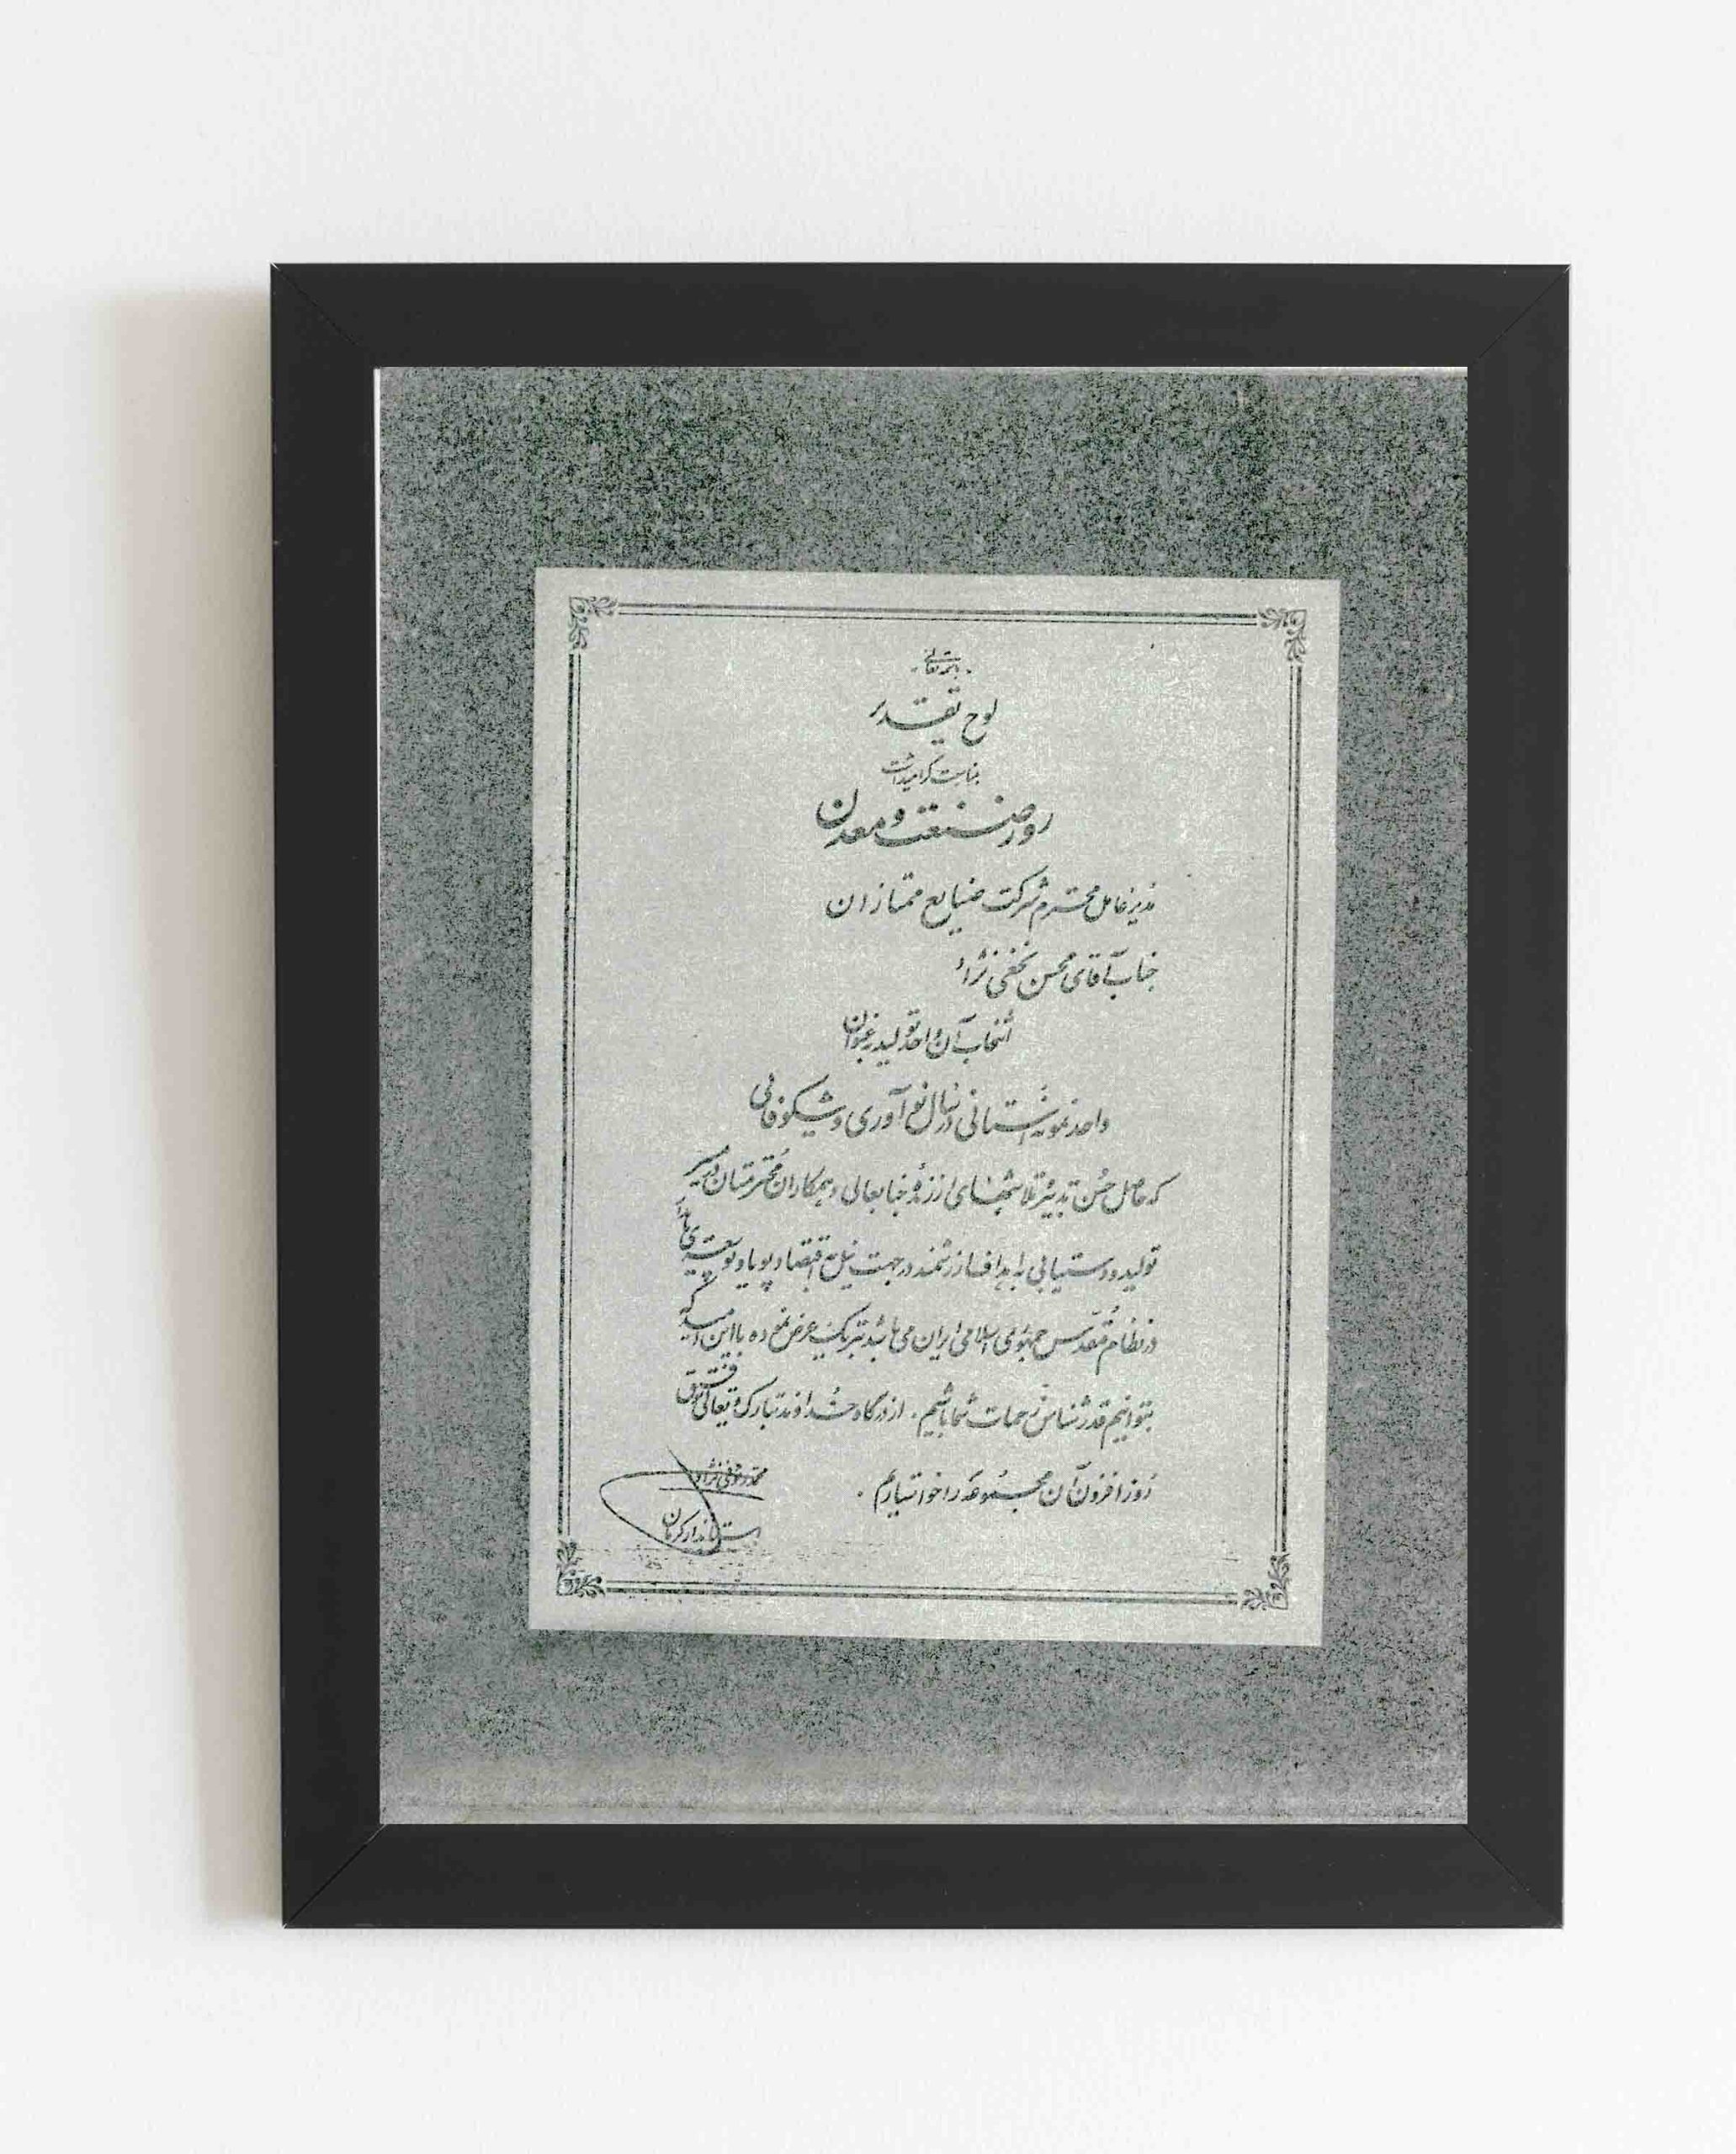 باسمه تعالی
لوح تقدیر
بمناسبت گرامیداشت
روز صنعت و معدن
مدیرعامل محترم شرکت صنایع ممتازان
جناب آقای محسن نجفی نژاد
انتخاب آن واحد تولید بعنوان
واحد نمونه استانی در سال نوآوری و شکوفائی
که حاصل حسن تدبیر و تلاشهای ارزنده جنابعالی و همکاران محترمتان در مسیر
تولید و دستیابی به اهداف ارزشمند در جهت نیل به اقتصاد پویا و توسعه
در نظام مقدس جمهوری اسلامی ایران می باشد تبریک عرض نموده با این امید که
بتوانیم قدرشناس زحمات شما باشیم . از درگاه خداوند تبارک و تعالی توفیق
روزافزون آن مجموعه را خواستاریم .
محمد رئوفی نژاد
استاندار کرمان